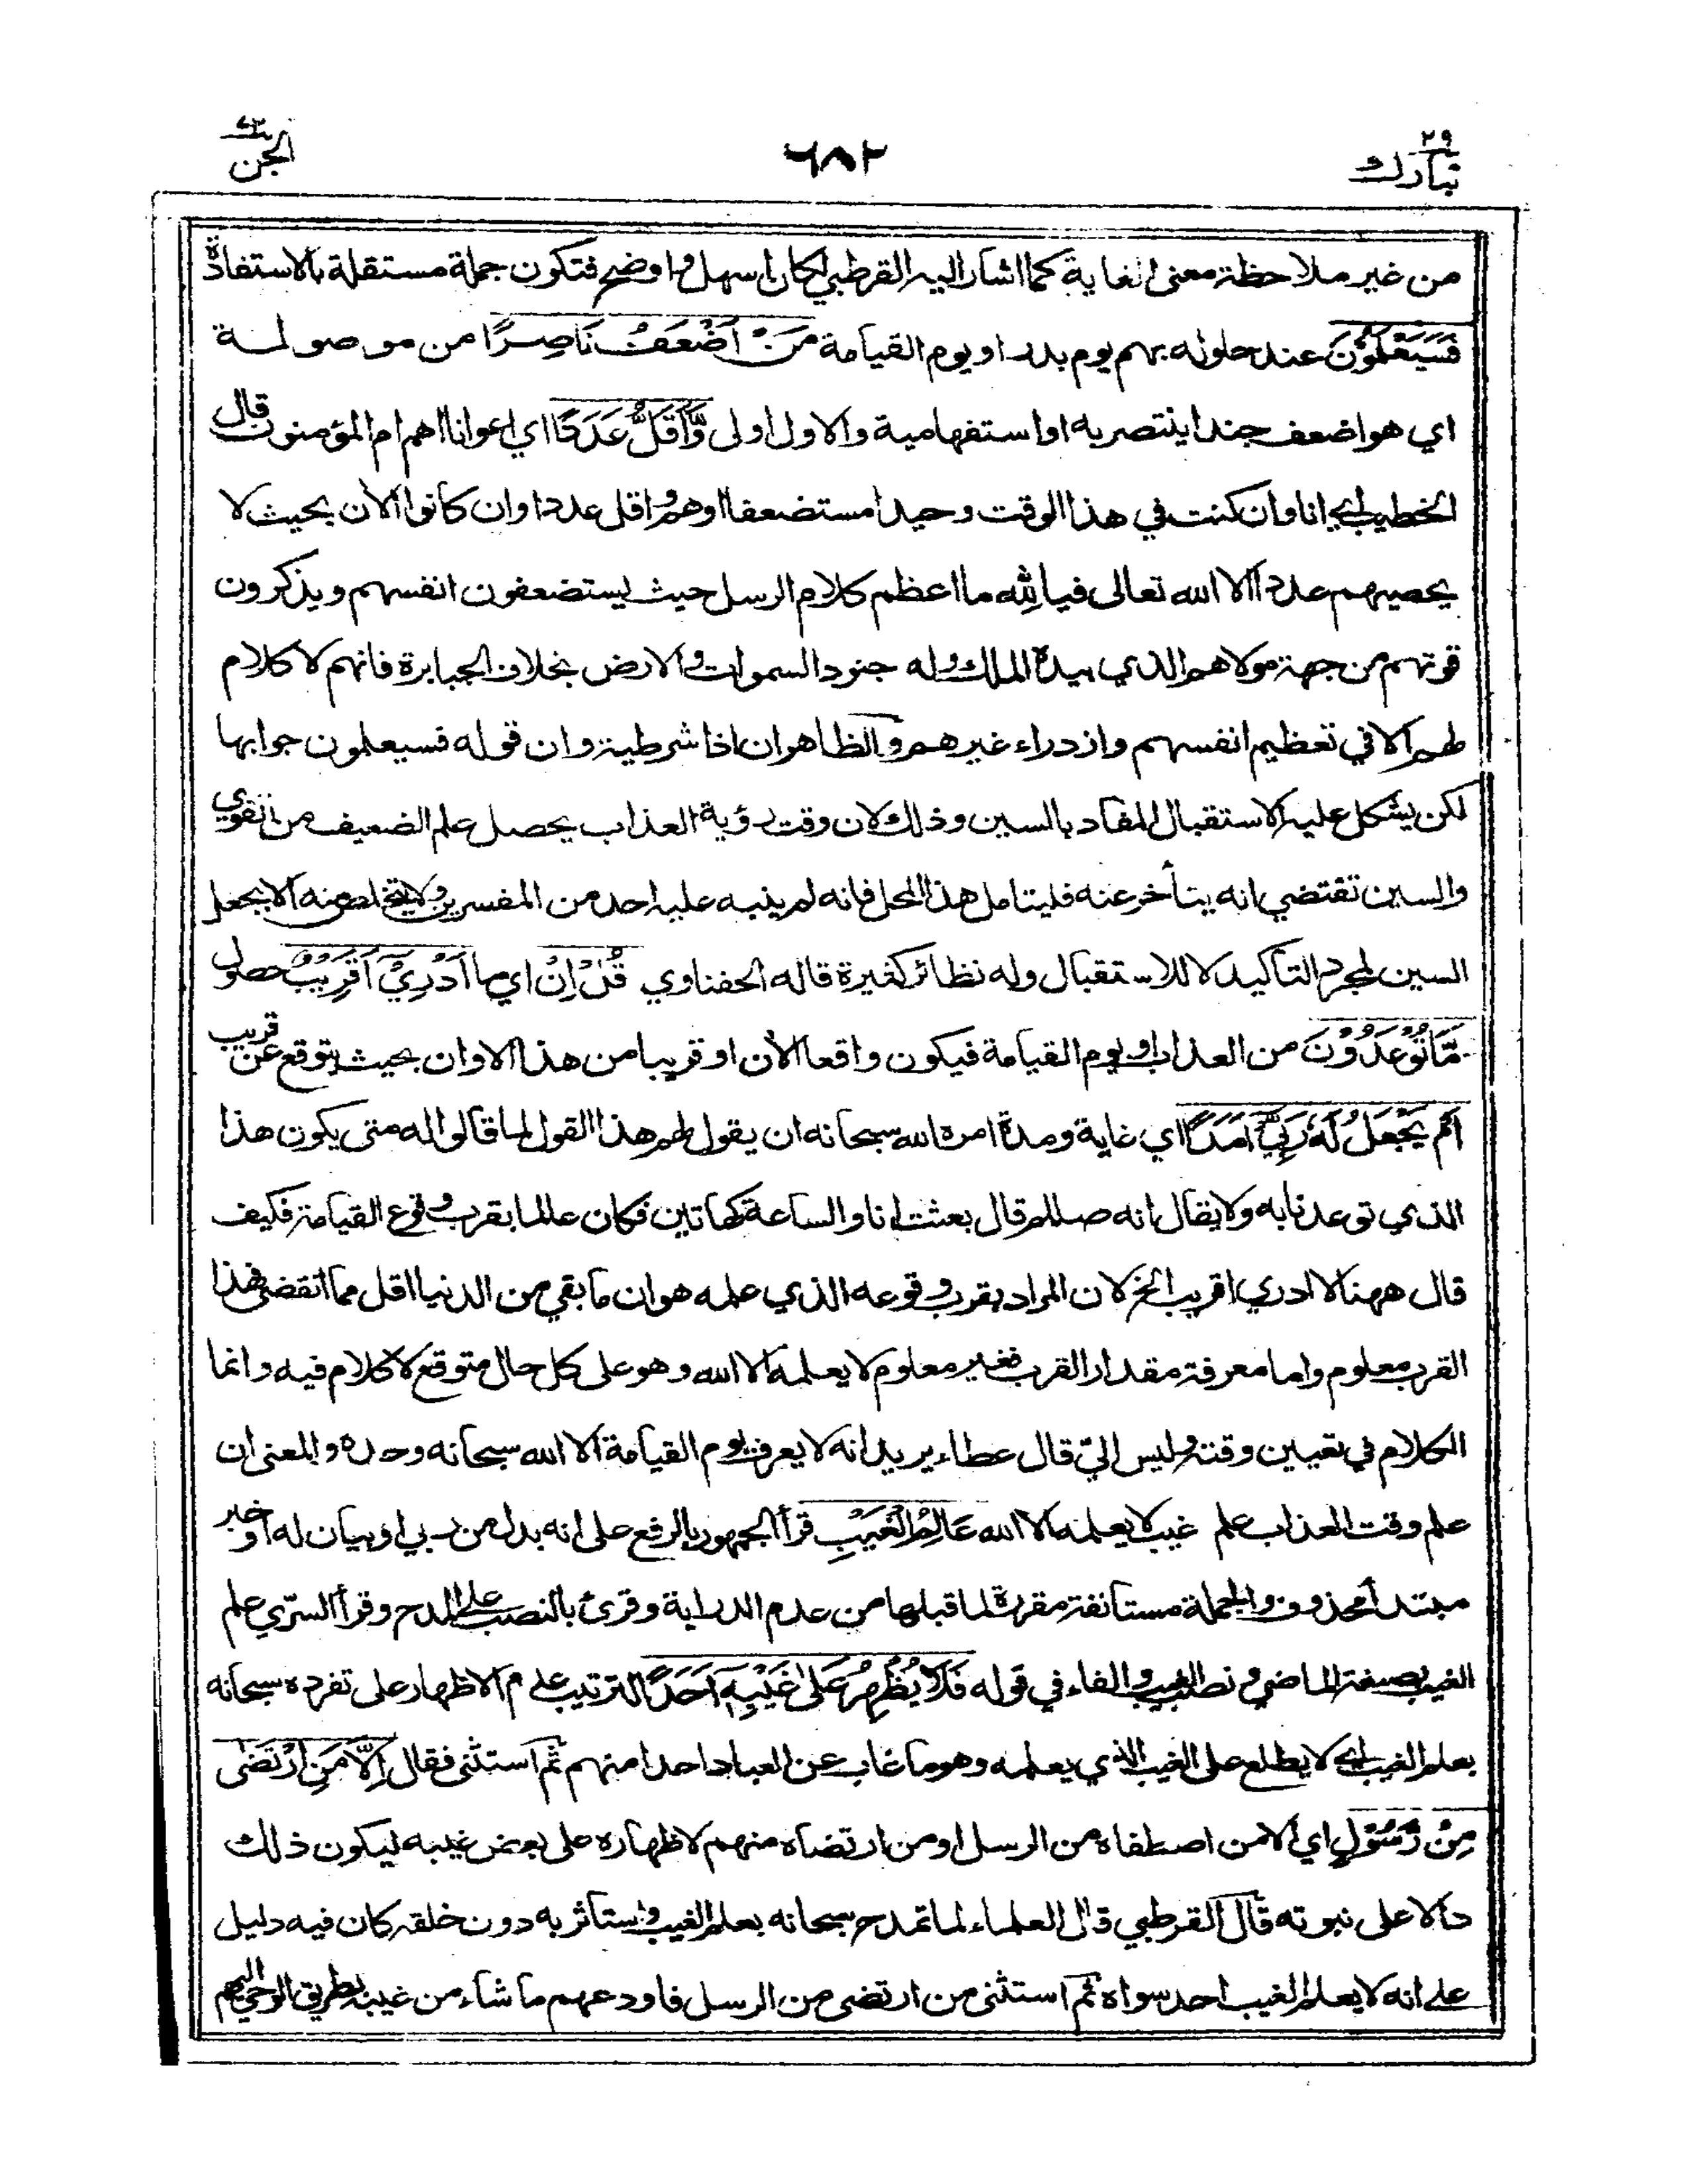 ٢٩
تبارك
٦٨٢
الجن
من غير ملاحظة معنى الغاية كما اشار اليه القرطبي لكان اسهل واوضح فتكون جملة مستقلة بالاستفادة
فَسَيَعْلَمُوْنَ عند حلوله بهم يوم بدر او يوم القيامة مَنْ اَضْعَفُ نَاصِرًا من موصولة
اي هو اضعف جندا ينتصر به او استفهامية والاول اولى وَّاَقَلُّ عَدَدًا اي اعوانا اهم ام المؤمنون قال
الخطيب اي انا وان كنت في هذا الوقت وحيدا مستضعفا او هم اقل عددا وان كانوا الآن بحيث لا
يحصيهم عددا الا الله تعالى فيالله ما اعظم كلام الرسل حيث يستضعفون انفسهم ويذكرون
قوتهم من جهة مولاهم الذي بيده الملك وله جنود السموات والارض بخلاف الجبابرة فانهم لا كلام
لهم الا في تعظيم انفسهم وازدراء غيرهم والظاهر ان اذا شرطية وان قوله فسيعلمون جوابها
لكن يشكل عليه الاستقبال المفاد بالسين وذلك لان وقت رؤية العذاب يحصل علم الضعيف من القوي
والسين تقتضي انه يتأخر عنه فليتامل هذا المحل فانه لم ينبه عليه احد من المفسرين ولا يتخلص منه الا بجعل
السين لمجرد التأكيد لا للاستقبال وله نظائر كثيرة قاله الحفناوي قُلْ اِنْ اي ما اَدْرِيْٓ اَقَرِيْبٌ حصول
مَّا تُوْعَدُوْنَ من العذاب او يوم القيامة فيكون واقعا الآن او قريبا من هذا الاوان بحيث يتوقع عن قريب
اَمْ يَجْعَلُ لَهٗ رَبِّيْٓ اَمَدًا اي غاية ومدة امره الله سبحانه ان يقول لهم هذا القول لما قالوا له متى يكون هذا
الذي توعدنا به ولا يقال انه صللم قال بعثت انا والساعة كهاتين فكان عالما بقرب وقوع القيامة فكيف
قال ههنا لا ادري اقريب الخ لان المراد بقرب وقوعه الذي علمه هو ان ما بقي من الدنيا اقل مما انقضى فهذا
القرب معلوم واما معرفة مقدار القرب فغير معلوم لا يعلمه الا الله وهو على كل حال متوقع لا كلام فيه وانما
الكلام في تعيين وقته وليس اليّ قال عطاء يريد انه لا يعرف يوم القيامة الا الله سبحانه وحده والمعنى ان
علم وقت العذاب علم غيب لا يعلمه الا الله عَالِمُ الْغَيْبِ قرأ الجمهور بالرفع على انه بدل من ربي او بيان له او خبر
مبتدأ محذوف والجملة مستأنفة مقررة لما قبلها من عدم الدراية وقرئ بالنصب على المدح وقرأ السرّي علم
الغيب بصيغة الماضي ونصب الغيب والفاء في قوله فَلَا يُظْهِرُ عَلٰى غَيْبِهٖٓ اَحَدًا لترتيب عدم الاظهار على تفرده سبحانه
بعلم الغيب اي لا يطلع على الغيب الذي يعلمه وهو ما غاب عن العباد احدا منهم ثم استثنى فقال اِلَّا مَنِ ارْتَضٰى
مِنْ رَّسُوْلٍ اي الا من اصطفاه من الرسل او من ارتضاه منهم لاظهاره على بعض غيبه ليكون ذلك
دالا على نبوته قال القرطبي قال العلماء لما تمدح سبحانه بعلم الغيب واستأثر به دون خلقه كان فيه دليل
على انه لا يعلم الغيب احد سواه ثم استثنى من ارتضى من الرسل فاودعهم ما شاء من غيبه بطريق الوحي اليهم